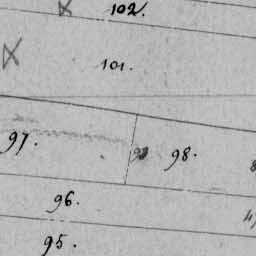 102.
101.
97.
98.
96.
95.